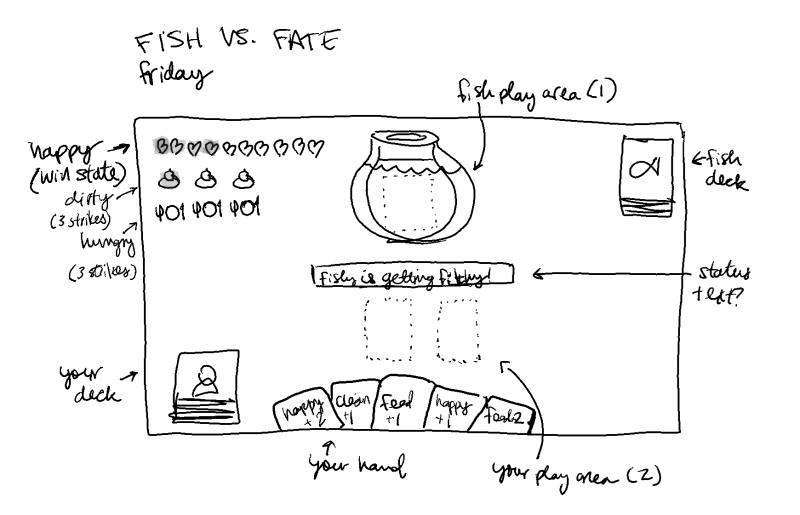 FISH VS. FATE
friday
fish play area (1)
happy
(win state)
dirty
(3 strikes)
hungry
(3 strikes)
fish
deck
fishy is getting filthy!
status
text?
your
deck
happy
+2
clean
+1
feed
+1
happy
+1
feed 2
your hand
your play area (2)